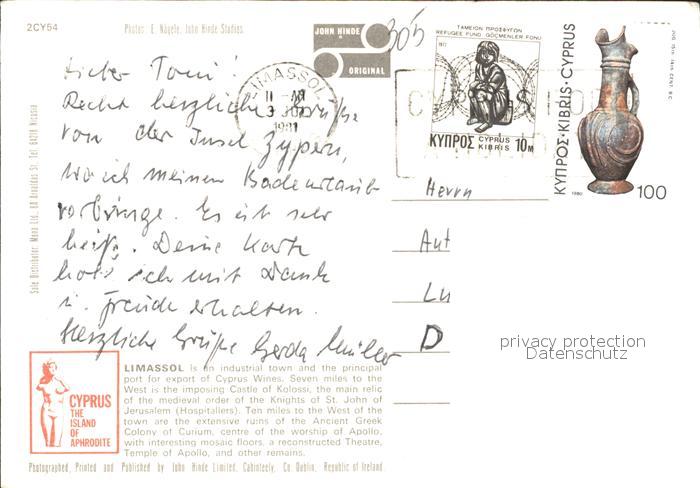 2CY54
Photos: E. Nägele, John Hinde Studios
JOHN HINDE
ORIGINAL
305
ΤΑΜΕΙΟΝ ΠΡΟΣΦΥΓΩΝ
REFUGEE FUND GÖÇMENLER FONU
1977
ΚΥΠΡΟΣ CYPRUS KIBRIS 10M
ΚΥΠΡΟΣ·KIBRIS·CYPRUS
JUG 15th-14th CENT. B.C.
1980
100
LIMASSOL
11-AM
1981
Lieber Toni!
Recht herzliche Grüße
von der Insel Zypern,
wo ich meinen Badeurlaub
verbringe. Es ist sehr
heiß. Deine Karte
hab ich mit Dank
u. Freude erhalten.
Herzliche Grüße Gerda Müller
Herrn
Ant
Lu
D
privacy protection
Datenschutz
CYPRUS
THE
ISLAND
OF
APHRODITE
LIMASSOL is an industrial town and the principal
port for export of Cyprus Wines. Seven miles to the
West is the imposing Castle of Kolossi, the main relic
of the medieval order of the Knights of St. John of
Jerusalem (Hospitallers). Ten miles to the West of the
town are the extensive ruins of the Ancient Greek
Colony of Curium, centre of the worship of Apollo,
with interesting mosaic floors, a reconstructed Theatre,
Temple of Apollo, and other remains.
Photographed, Printed and Published by John Hinde Limited, Cabinteely, Co. Dublin, Republic of Ireland.